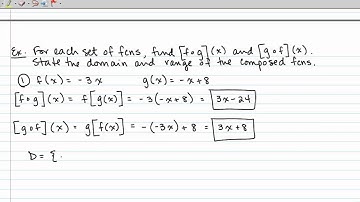 Ex. For each set of fcns, find [f∘g](x) and [g∘f](x).
State the domain and range of the composed fcns.
① f(x) = -3x g(x) = -x+8
[f∘g](x) = f[g(x)] = -3(-x+8) = 3x-24
[g∘f](x) = g[f(x)] = -(-3x)+8 = 3x+8
D = {